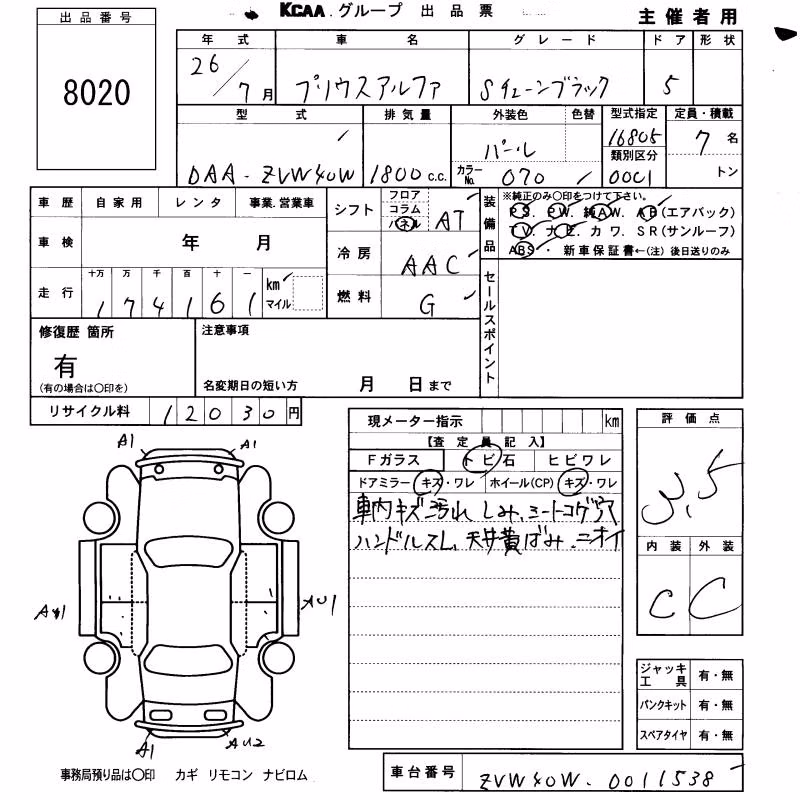 KCAA.グループ 出品票
主催者用
出品番号
8020
年式 車名 グレード ドア 形状
26/7月 プリウスアルファ Sチューンブラック 5
型式 排気量 外装色 色替 型式指定 定員・積載
DAA-ZVW40W 1800c.c. パール 16805 7名
カラーNo. 070 類別区分 0001 トン
車歴 自家用 レンタ 事業.営業車
車検 年 月
走行 十万 万 千 百 十 一
174161 km マイル
シフト フロア コラム パネル AT
冷房 AAC
燃料 G
装備品
※純正のみ○印をつけて下さい。
PS. PW. 純AW. AB(エアバック)
TV. ナビ. カワ. SR(サンルーフ)
ABS・新車保証書←(注)後日送りのみ
セールスポイント
修復歴 箇所
有
(有の場合は○印を)
注意事項
名変期日の短い方 月 日まで
リサイクル料 12030円
現メーター指示 km
【査定員記入】
Fガラス トビ石 ヒビワレ
ドアミラー キズ・ワレ ホイール(CP) キズ・ワレ
車内キズ汚れ しみ.シートコゲ穴
ハンドルスレ.天井黄ばみ.ニオイ
評価点
3.5
内装 外装
C C
A1 A1
AU1
A1 AU2
ジャッキ工具 有・無
パンクキット 有・無
スペアタイヤ 有・無
事務局預り品は○印 カギ リモコン ナビロム
車台番号 ZVW40W-0011538